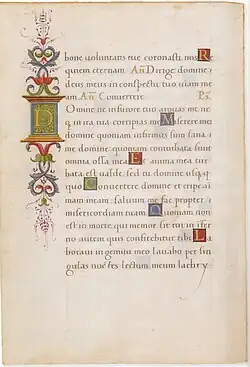 bone voluntatis tue coronasti nos. Re
quiem eternam. Añ Dirige domine
deus meus in conspectu tuo viam me
am. Añ Convertere. Ps.
Domine ne in furore tuo arguas me: ne
q; in ira tua corripias me. Miserere mei
domine quoniam infirmus sum: sana
me domine quoniam conturbata sunt
omnia ossa mea. Et anima mea tur
bata est valde: sed tu domine usq; quo
Convertere domine et eripe ani
mam meam: salvum me fac propter
misericordiam tuam. Quoniam non
est in morte qui memor sit tui: in infer
no autem quis confitebitur tibi. La
boravi in gemitu meo lavabo per sin
gulas noctes lectum meum lachry